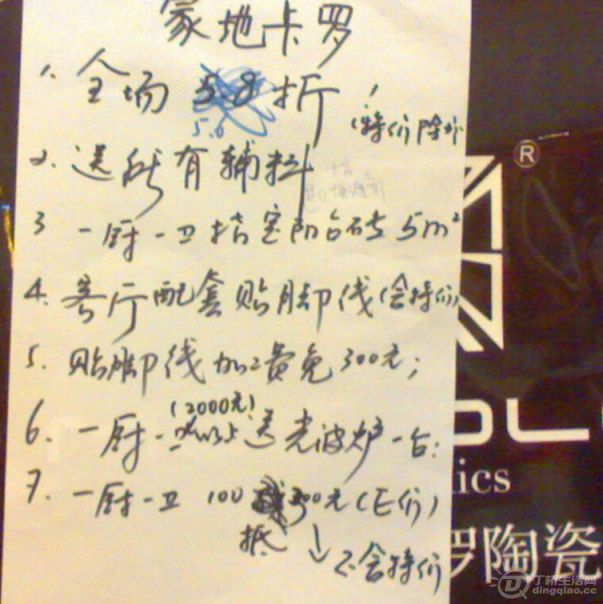 蒙地卡罗
1. 全场 58折 (特价除外
5.6
2. 送所有辅料
3 一厨一卫指定阳台砖 5m²
4. 客厅配套贴脚线(含特价)
5. 贴脚线加工费免300元;
(2000元)
6. 一厨一卫以上送光波炉一台:
7. 一厨一卫 100抵300元(E价)
不含特价
®
OL
ics
罗陶瓷
丁桥生活网
dingqiao.cc